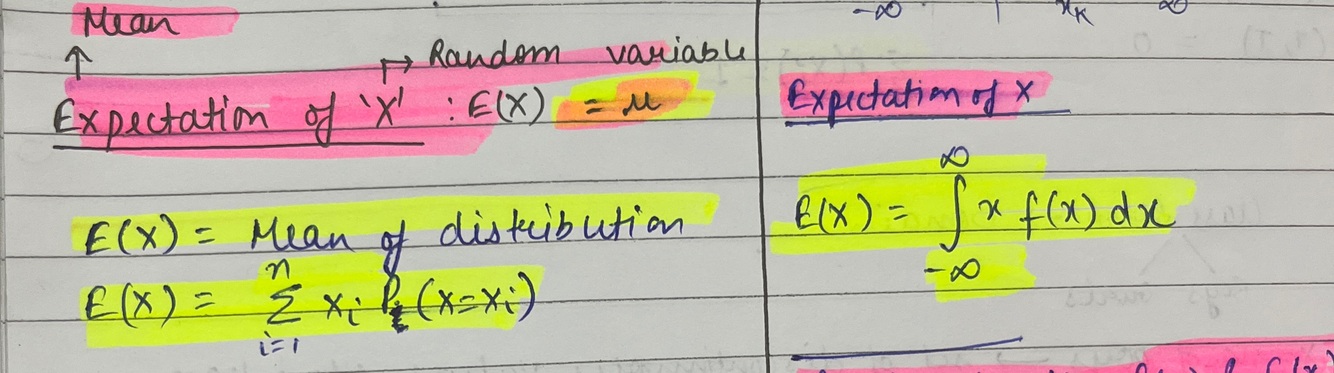 Mean
↑ ↦ Random variable
Expectation of 'X' : E(X) = μ
E(X) = Mean of distribution
n
E(X) = Σ xi P (X=xi)
i=1
-∞ xK ∞
Expectation of X
∞
E(X) = ∫ x f(x) dx
-∞